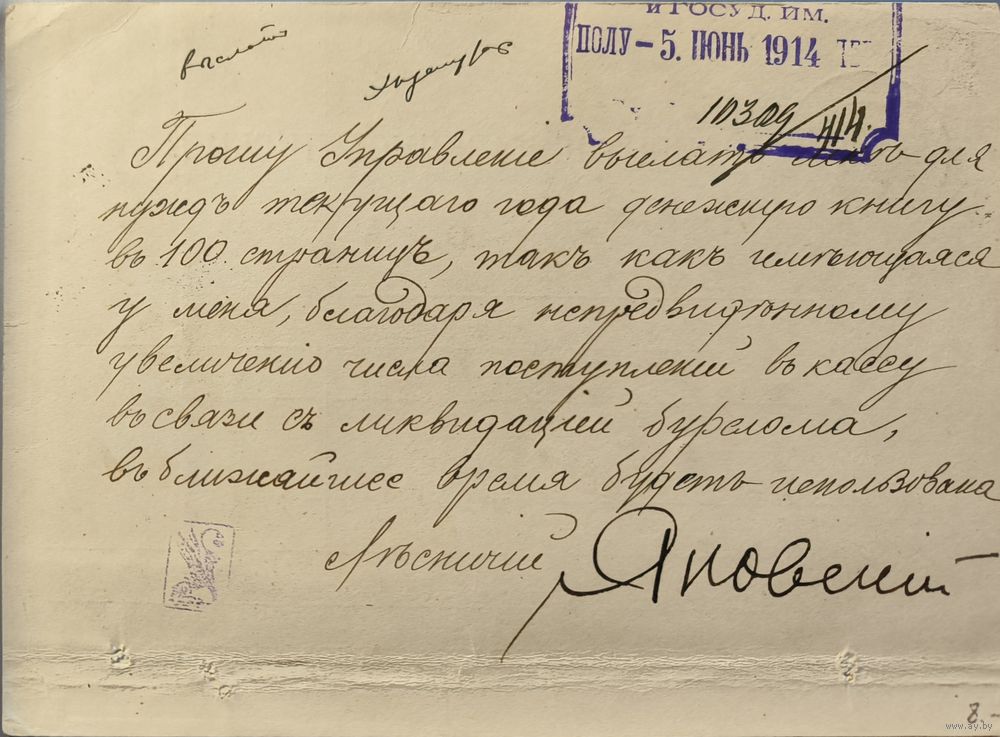 И ГОСУД. ИМ.
ПОЛУ – 5. ИЮНЬ 1914
выслать
10309/414.
Прошу Управленіе выслать мнѣ для
нуждъ текущаго года денежную книгу
въ 100 страницъ, такъ какъ имѣющаяся
у меня, благодаря непредвидѣнному
увеличенію числа поступленій въ кассу
въ связи съ ликвидаціей бурелома,
въ ближайшее время будетъ использована
Лѣсничій Яновскій
8.–
www.ay.by